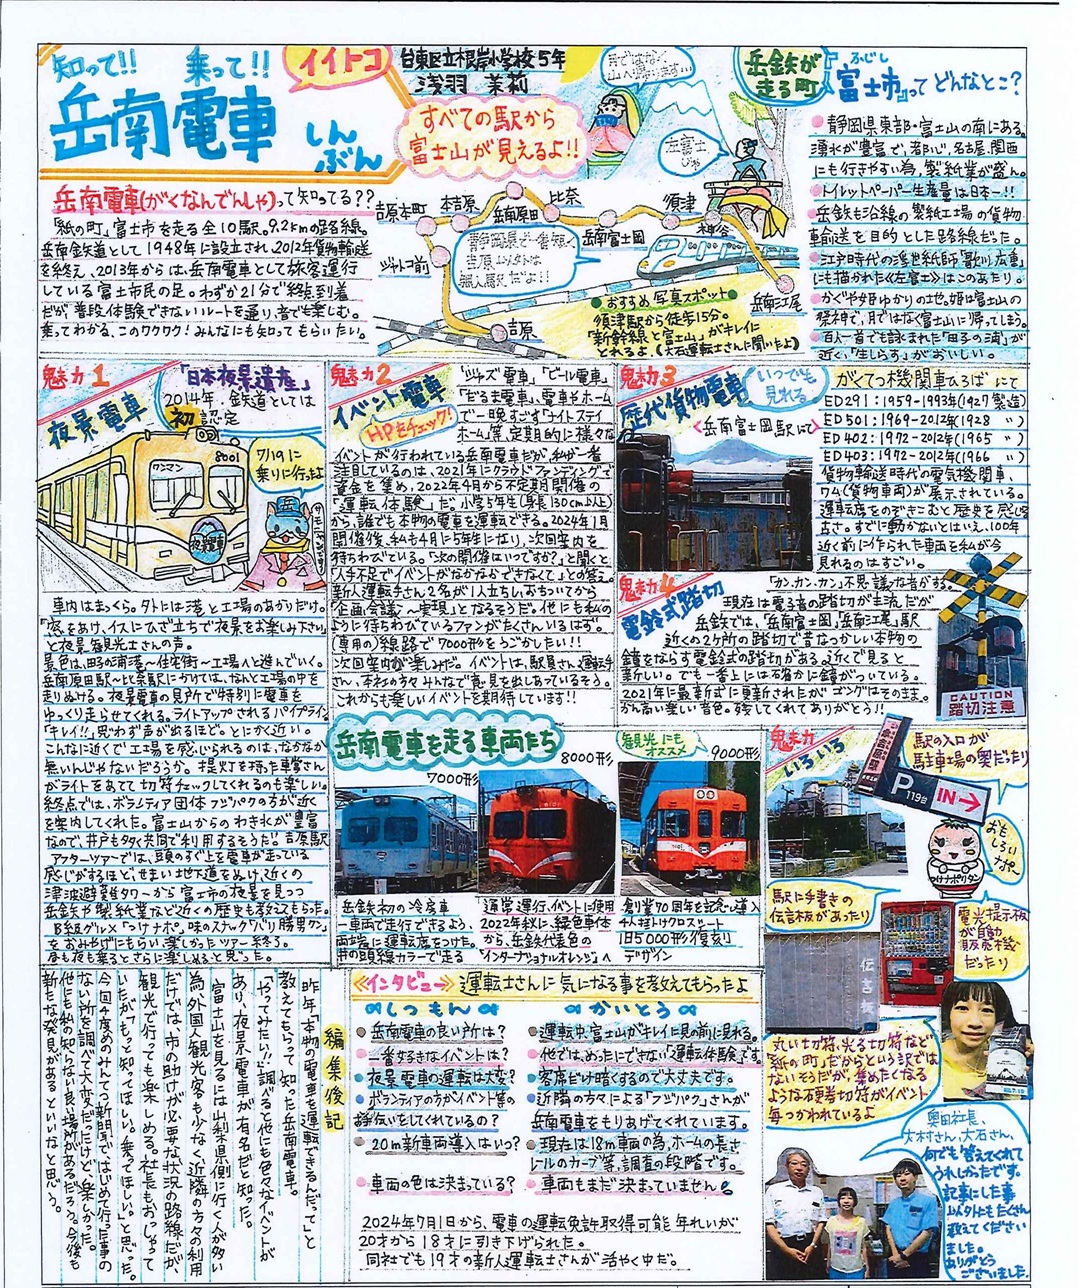 知って!! 乗って!! イイトコ
岳南電車 しんぶん
台東区立根岸小学校5年
浅羽 茉莉
すべての駅から
富士山が見えるよ!!
月ではなく
山へ帰ります
左富士
じゃ
岳鉄が
走る町
『富士市』ってどんなとこ?
ふじし
静岡県東部・富士山の南にある。
湧水が豊富で、都心、名古屋、関西
にも行きやすい為、製紙業が盛ん。
トイレットペーパー生産量は日本一!!
岳鉄も沿線の製紙工場の貨物
輸送を目的とした路線だった。
江戸時代の浮世絵師「歌川広重」
にも描かれた《左富士》はこのあたり。
かぐや姫ゆかりの地。姫は富士山の
祭神で、月ではなく富士山に帰ってしまう。
百人一首でも詠まれた「田子の浦」が
近く、「生しらす」がおいしい。
岳南電車(がくなんでんしゃ)って知ってる??
「紙の町」富士市を走る全10駅。9.2kmの路線。
岳南鉄道として1948年に設立され、2012年貨物輸送
を終え、2013年からは、岳南電車として旅客運行
している富士市民の足。わずか21分で終点到着
だが普段体験できないルートを通り、音でも楽しむ。
乗ってわかる、このワクワク!みんなにも知ってもらいたい。
吉原
ジヤトコ前
吉原本町
本吉原
岳南原田
比奈
岳南富士岡
須津
神谷
岳南江尾
静岡県で一番短く
吉原以外は
無人駅だよ!!
おすすめ写真スポット
須津駅から徒歩15分。
「新幹線と富士山」がキレイに
とれるよ。(大石運転士さんに聞いたよ)
魅力1
夜景電車
「日本夜景遺産」
2014年、鉄道としては
初認定
ワンマン
8001
夜景電車
7/19に
乗りに行ったよ
車内はまっくら。外には港と工場のあかりだけ。
「窓をあけ、イスにひざ立ちで夜景をお楽しみ下さい」
と夜景観光士さんの声。
景色は、田子の浦港～住宅街～工場へと進んでいく。
岳南原田駅～比奈駅にかけては、なんと工場の中を
走りぬける。夜景電車の見所で特別に電車を
ゆっくり走らせてくれる。ライトアップされるパイプライン
「キレイ!!」思わず声が出るほど。とにかく近い。
こんなに近くで工場を感じられるのは、なかなか
無いんじゃないだろうか。提灯を持った車掌さん
がライトをあてて切符チェックしてくれるのも楽しい。
終点では、ボランティア団体フジパクの方が近く
を案内してくれた。富士山からのわき水が豊富
なので、井戸も多く共同で利用するそうだ!!吉原駅
アフターツアーでは、頭のすぐ上を電車が走っている
感じがするほどせまい地下道をぬけ、近くの
津波避難タワーから富士市の夜景を見つつ
岳鉄や製紙業など近くの歴史も教えてもらった。
B級グルメ「つけナポ」味のスナック「バリ勝男クン」
をおみやげにもらい、楽しかったツアー終了。
昼も夜も乗るとさらに楽しめると思った。
魅力2
イベント電車
HPをチェック!
「ジャズ電車」「ビール電車」
「だるま電車」、電車やホーム
で一晩すごす「ナイトステイ
ホーム」等、定期的に様々な
イベントが行われている岳南電車だが、私が一番
注目しているのは、2021年にクラウドファンディングで
資金を集め、2022年4月から不定期開催の
「運転体験」だ。小学5年生(身長130cm以上)
から、誰でも本物の電車を運転できる。2024年1月
開催後、私も4月に5年生になり、次回案内を
待ちわびている。「次の開催はいつですか?」と聞くと
「人手不足でイベントがなかなかできなくて」との答え。
新人運転手さん2名が1人立ちし、おちついてから
「企画会議～実現」となるそうだ。他にも私の
ように待ちわびているファンがたくさんいるはず。
(専用の)線路で7000形をうごかしたい!!
次回案内が楽しみだ。イベントは、駅員さん、運転手
さん、本社の方々みんなで意見を出しあっているそう。
これからも楽しいイベントを期待しています!!
魅力3
歴代貨物電車
いつでも
見れる
《岳南富士岡駅にて》
がくてつ機関車ひろばにて
ED291:1959-1993年(1927製造)
ED501:1969-2012年(1928 〃)
ED402:1972-2012年(1965 〃)
ED403:1972-2012年(1966 〃)
貨物輸送時代の電気機関車、
ワム(貨物車両)が展示されている。
運転席をのぞきこむと歴史を感じる
古さ。すでに動かないとはいえ、100年
近く前に作られた車両を私が今
見れるのはすごい。
魅力4
電鈴式踏切
「カン、カン、カン」不思議な音がする。
現在は電子音の踏切が主流だが
岳鉄では、「岳南富士岡」「岳南江尾」駅
近くの2ヶ所の踏切で昔なつかしい本物の
鐘をならす電鈴式の踏切がある。近くで見ると
新しい。でも一番上には確かに鐘がついている。
2021年に最新式に更新されたが、ゴングはそのまま。
かん高い楽しい音色。残してくれてありがとう!!
CAUTION
踏切注意
岳南電車を走る車両たち
観光にも
オススメ
7000形
8000形
9000形
岳鉄初の冷房車
一車両で走行できるよう、
両端に運転席をつけた。
井の頭線カラーで走る
通常運行、イベントに使用
2022年秋に、緑色車体
から、岳鉄代表色の
「インターナショナルオレンジ」へ
創業70周年を記念し導入
4人掛けクロスシート
旧5000形復刻
デザイン
魅力
いろいろ
駅の入口が
駐車場の奥だったり
P
119台
IN→
おも
しろい
ナポリ
つけナポリタン
駅に手書きの
伝言板があったり
電光掲示板
が自動
販売機
だったり
丸い切符、光る切符など
「紙の町」だからという訳では
ないそうだが、集めたくなる
ような硬券切符がイベント
毎つかわれているよ
奥田社長、
大村さん、大石さん、
何でも答えてくれて
うれしかったです。
記事にした事
以外にもたくさん
教えてください
ました。
ありがとう
ございました。
《インタビュー》運転士さんに気になる事を教えてもらったよ
しつもん
かいとう
岳南電車の良い所は?
運転中、富士山がキレイに目の前に見れる。
一番好きなイベントは?
他では、めったにできない「運転体験」です。
夜景電車の運転は大変?
客席だけ暗くするので大丈夫です。
ボランティアの方がイベント等の
お手伝いをしてくれているの?
近隣の方々による「フジパク」さんが
岳南電車をもりあげてくれています。
20m新車両導入はいつ?
現在は18m車の為、ホームの長さ
レールのカーブ等、調査の段階です。
車両の色は決まっている?
車両もまだ決まっていません。
2024年7月1日から、電車の運転免許取得可能年れいが
20才から18才に引き下げられた。
同社でも19才の新人運転士さんが活やく中だ。
編集後記
昨年、「本物の電車を運転できるんだって」と
教えてもらって知った岳南電車。
「やってみたい!!」調べると他にも色々なイベントが
あり、夜景電車が有名だと知った。
富士山を見るには山梨県側に行く人が多い
為、外国人観光客も少なく、近隣の方々の利用
だけでは、市の助けが必要な状況の路線だが、
観光で行っても楽しめる。社長もおっしゃって
いたが「もっと知ってほしい。乗ってほしい」と思った。
今回4度めののんてつ新聞ではじめて行った事の
ない所を調べて大変だったけど、楽しかった。
他にも私の知らない良い場所があるだろう。今後も
新たな発見があるといいなと思う。